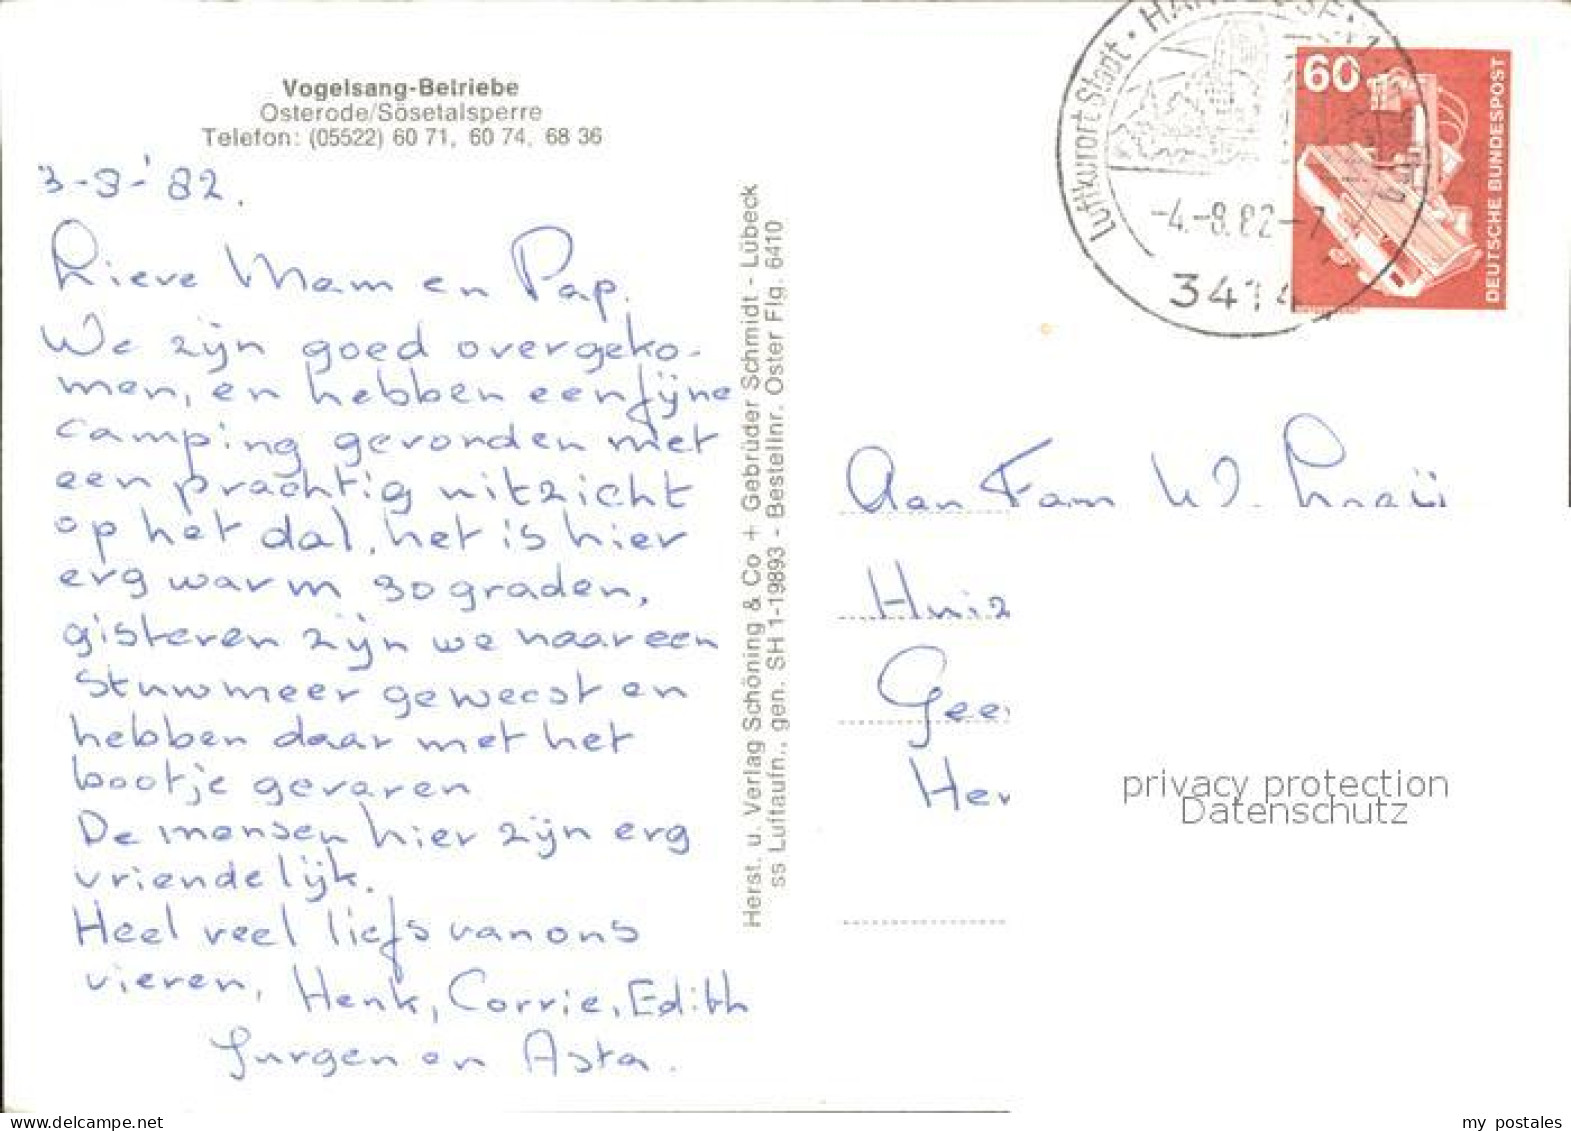 Vogelsang-Betriebe
Osterode/Sösetalsperre
Telefon: (05522) 60 71, 60 74, 68 36
3-8-'82.
Lieve Mam en Pap,
We zijn goed overgeko-
men, en hebben een fijne
camping gevonden met
een prachtig uitzicht
op het dal, het is hier
erg warm 30 graden,
gisteren zijn we naar een
stuwmeer geweest en
hebben daar met het
bootje gevaren
De mensen hier zijn erg
vriendelijk.
Heel veel liefs van ons
vieren, Henk, Corrie, Edith
Jurgen en Asta.
Herst. u. Verlag Schöning & Co + Gebrüder Schmidt - Lübeck
ss Luftaufn., gen. SH 1-19893 - Bestellnr. Oster Flg. 6410
Luftkurort Stadt · HARDEGSEN 1
-4.-8.82-7
3414
60
DEUTSCHE BUNDESPOST
Aan Fam W.
Huiz
Gee
Her
privacy protection
Datenschutz
my_postales